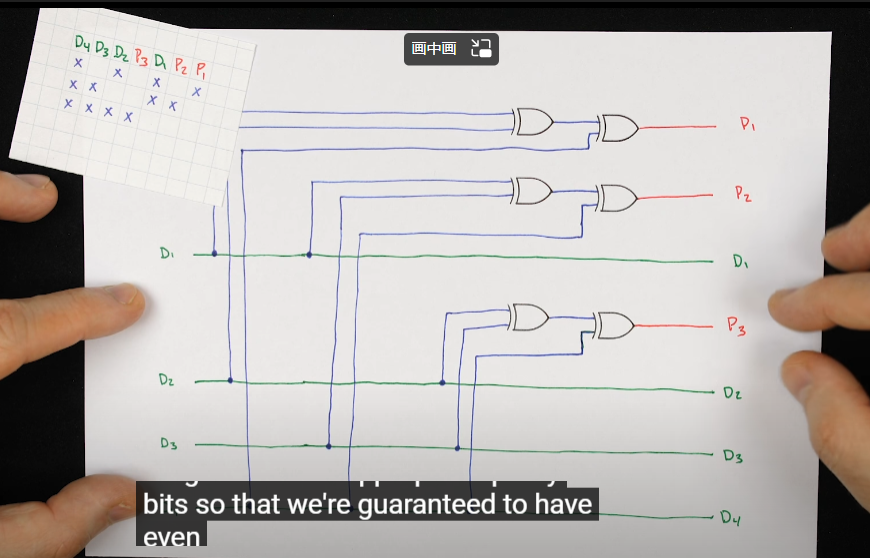 画中画
D4 D3 D2 P3 D1 P2 P1
x x x x
x x x x
x x x x
P1
P2
D1 D1
P3
D2 D2
D3 D3
bits so that we're guaranteed to have
even
D4